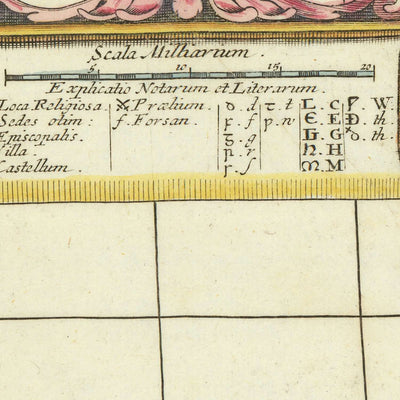 Scala Milliarium.
5 10 15 20
Explicatio Notarum et Literarum.
Loca Religiosa. Prælium. d t . t L . C W.
Sedes olim : f. Forsan. f E . E Ð . th.
Episcopalis. g G ð . th.
Villa . H
Castellum . M . M